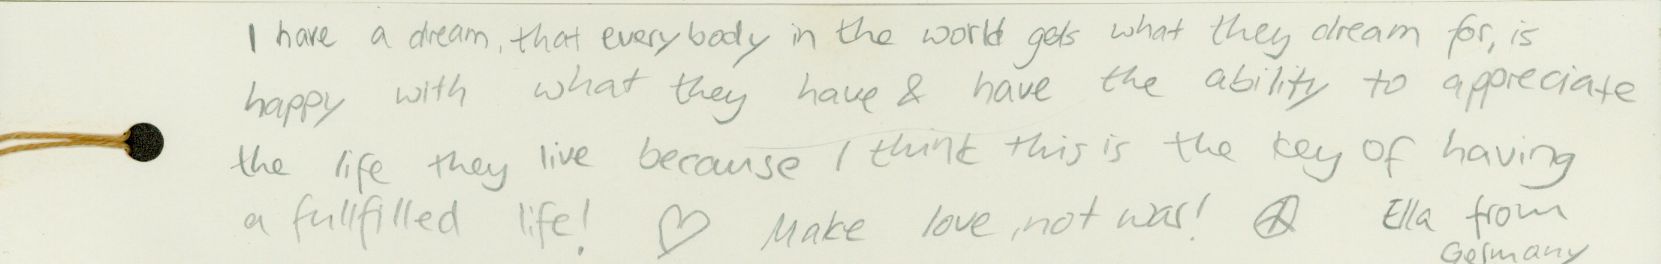 I have a dream, that everybody in the world gets what they dream for, is
happy with what they have & have the ability to appreciate
the life they live because I think this is the key of having
a fullfilled life! ♡ Make love, not war! ☮ Ella from
Germany